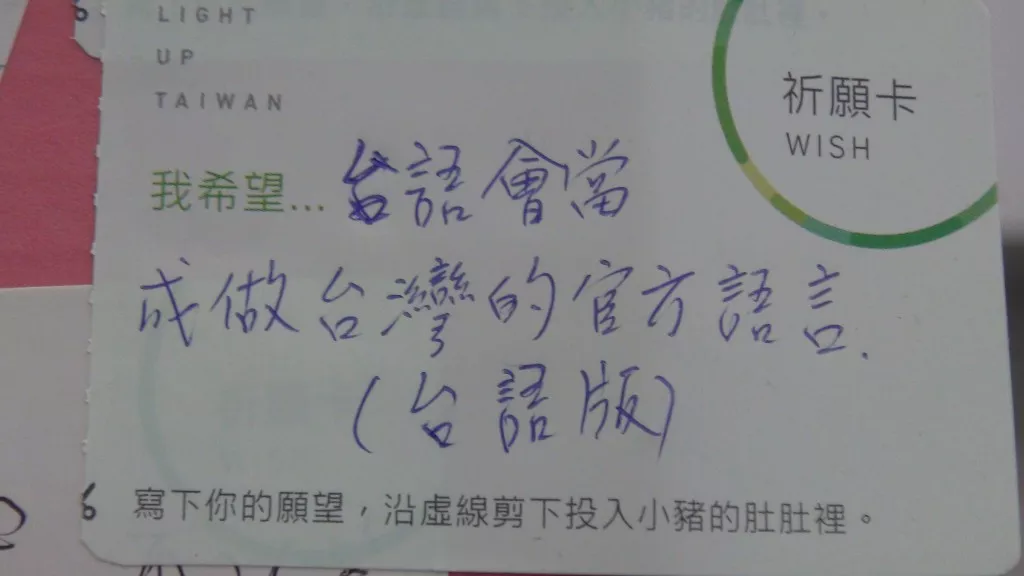 LIGHT
UP
TAIWAN
祈願卡
WISH
我希望... 台語會當
成做台灣的官方語言.
(台語版)
寫下你的願望，沿虛線剪下投入小豬的肚肚裡。